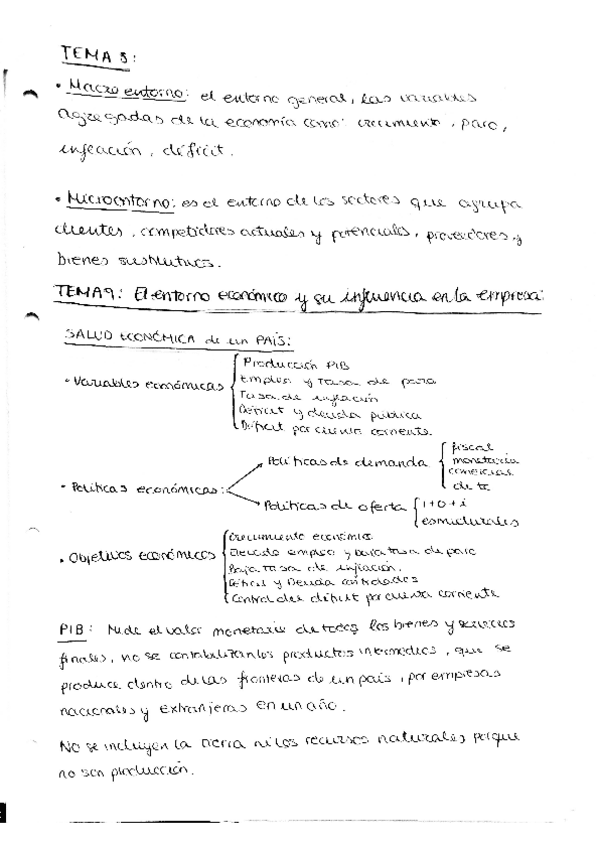 TEMA 8:
• Macroentorno: el entorno general, las variables
agregadas de la economía como: crecimiento, paro,
inflación, déficit.
• Microentorno: es el entorno de los sectores que agrupa
clientes, competidores actuales y potenciales, proveedores y
bienes sustitutivos.
TEMA 9: El entorno económico y su influencia en la empresa:
SALUD ECONÓMICA de un PAÍS:
• Variables económicas
Producción PIB
Empleo y Tasa de paro
Tasa de inflación
Déficit y deuda pública
Déficit por cuenta corriente.
• Políticas económicas:
Políticas de demanda
fiscal
monetaria
comercial
de tc
Políticas de oferta
I+D+i
estructurales
• Objetivos económicos
Crecimiento económico
Elevado empleo y baja tasa de paro
Baja tasa de inflación.
Déficit y Deuda controlados
Control del déficit por cuenta corriente
PIB: Mide el valor monetario de todos los bienes y servicios
finales, no se contabilizan los productos intermedios, que se
produce dentro de las fronteras de un país, por empresas
nacionales y extranjeras en un año.
No se incluyen la tierra ni los recursos naturales porque
no son producción.